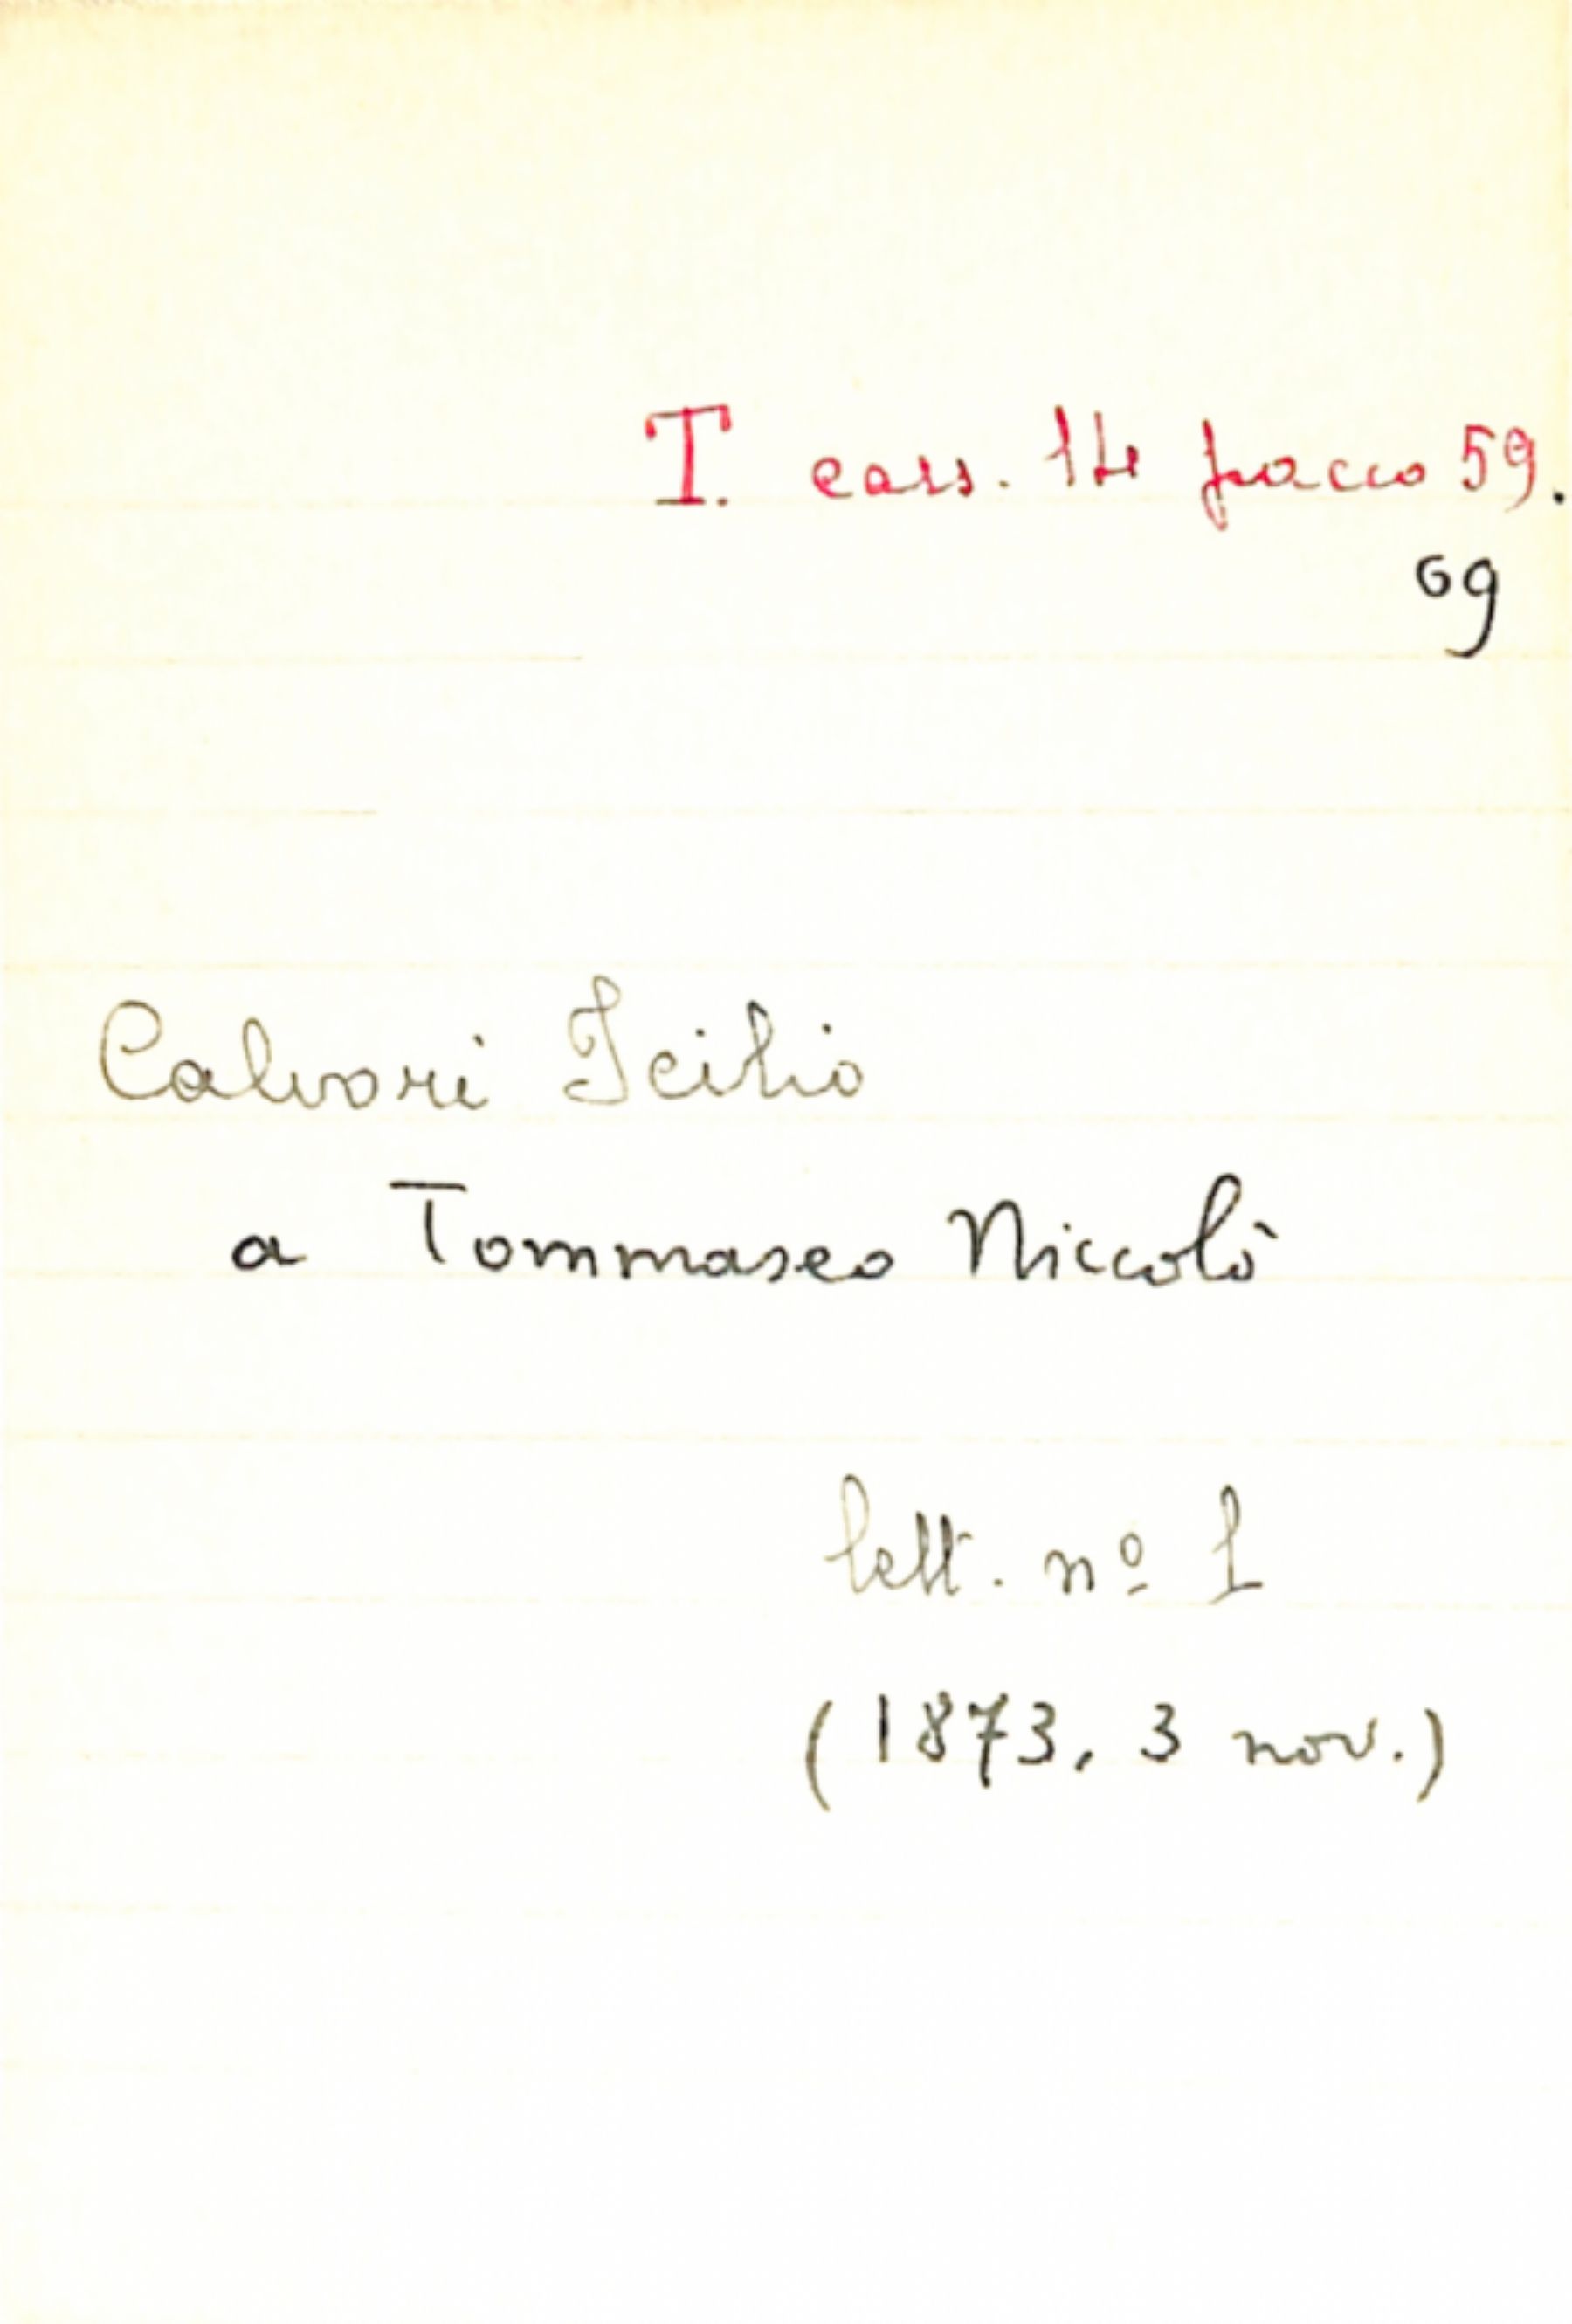 T. cass. 14 pacco 59.
69
Calvori Icilio
a Tommaseo Niccolò
lett. nº 1
(1873, 3 nov.)